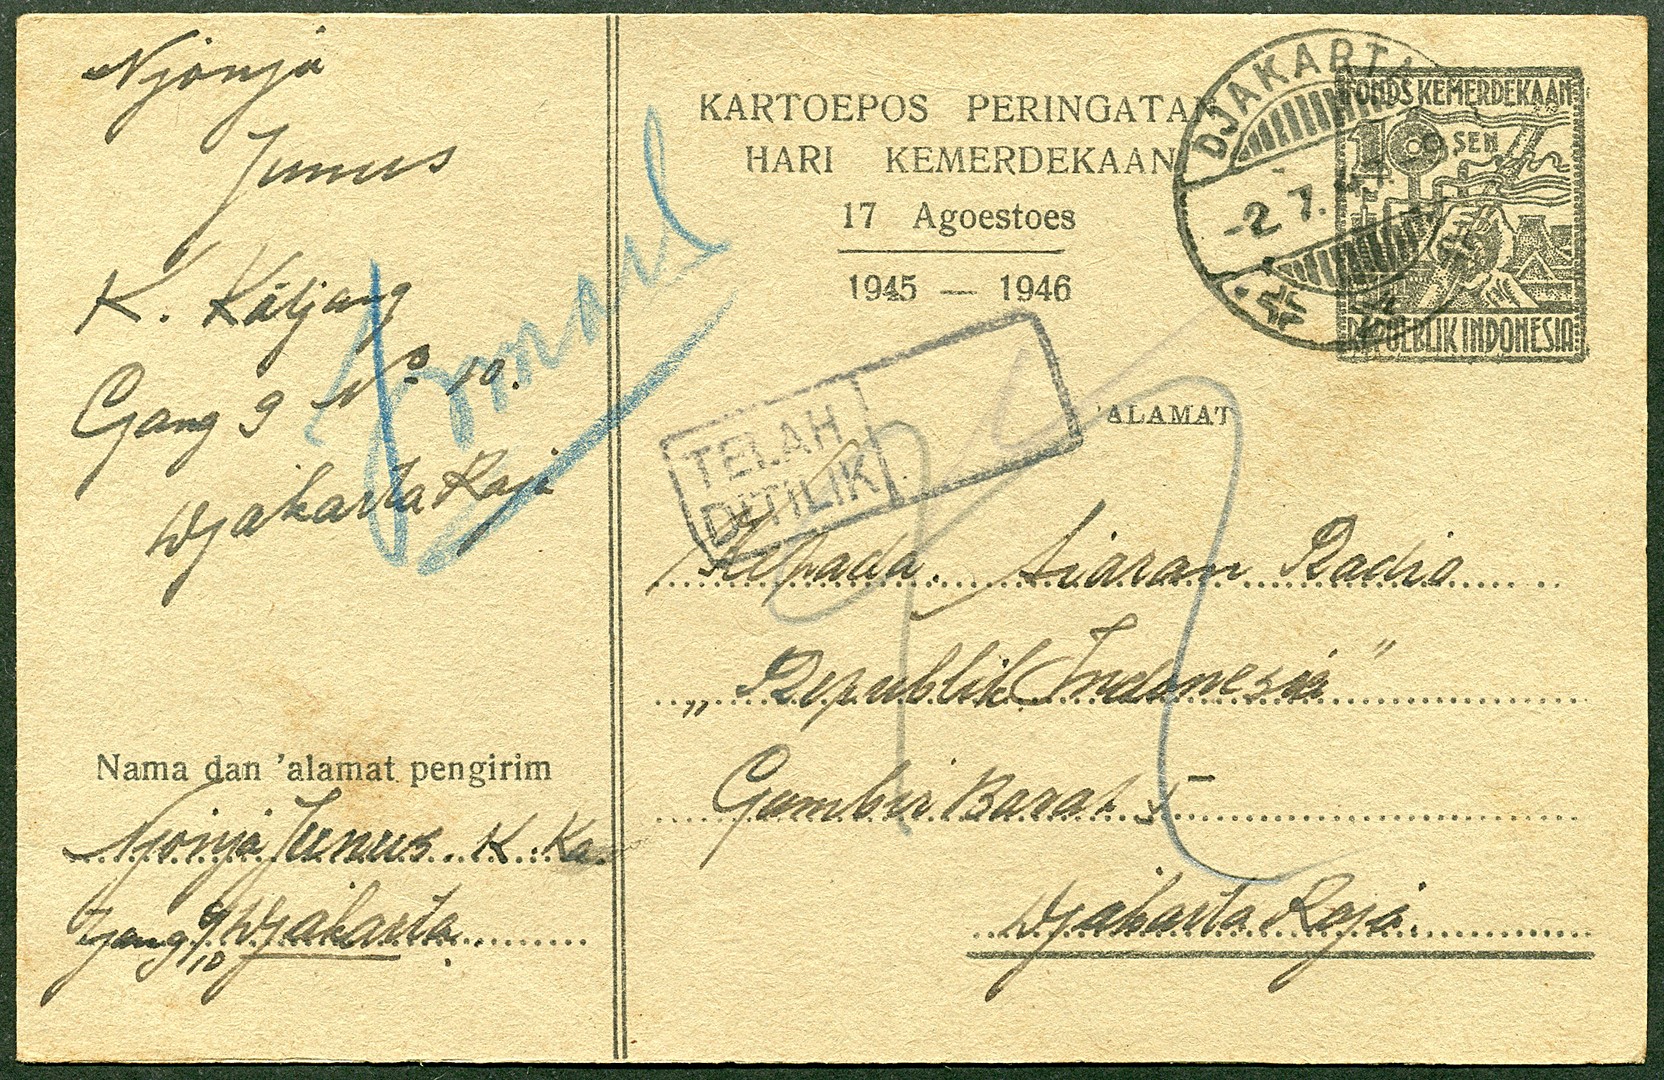 Njonja
Junus
K. Katjang
Gang 9 No 10.
Djakarta Raja
Nama dan 'alamat pengirim
Njonja Junus. K. Ka.
Gang 9/10 Djakarta.
KARTOEPOS PERINGATAN
HARI KEMERDEKAAN
17 Agoestoes
1945 — 1946
DJAKARTA
-2.7.47.-9
FONDS KEMERDEKAAN
10 SEN
REPUBLIK INDONESIA
TELAH
DITILIK
'ALAMAT
Kepada. Siaran Radio
„Republik Indonesia"
Gambir Barat 5
Djakarta Raja.